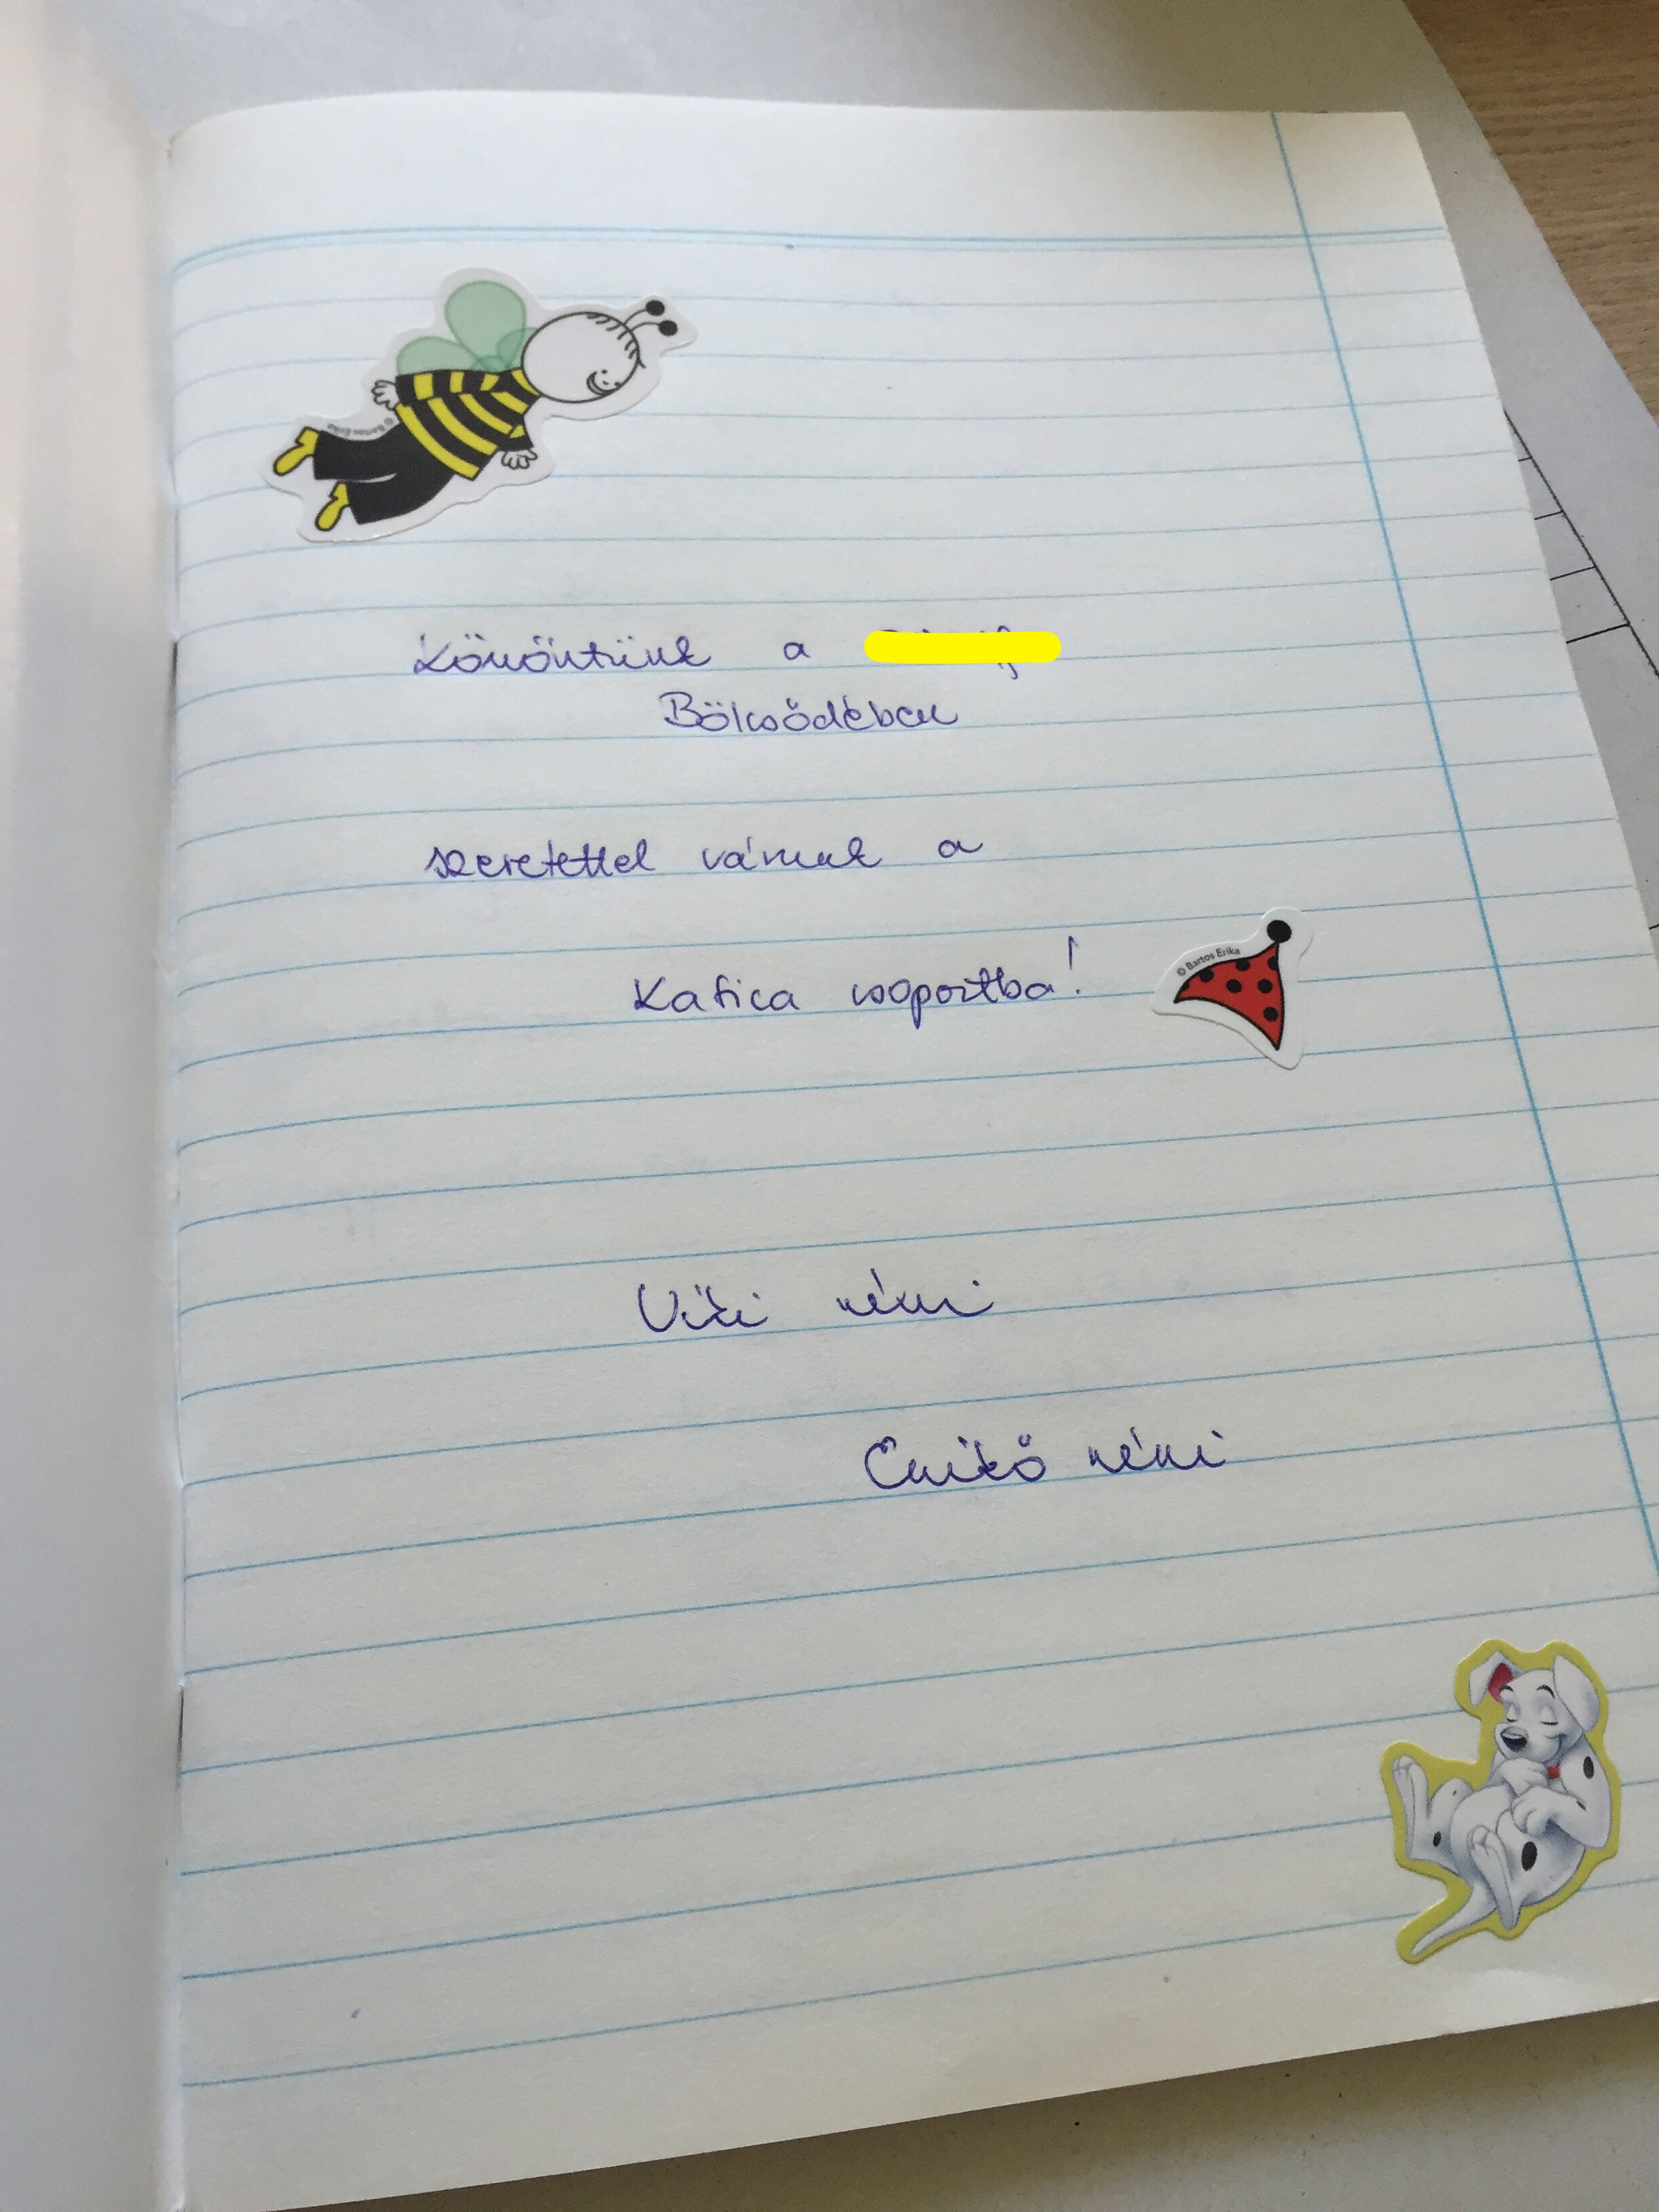 © Bartos Erika
Köszöntünk a
Bölcsődében
szeretettel várunk a
Katica csoportba!
© Bartos Erika
Viki néni
Enikő néni